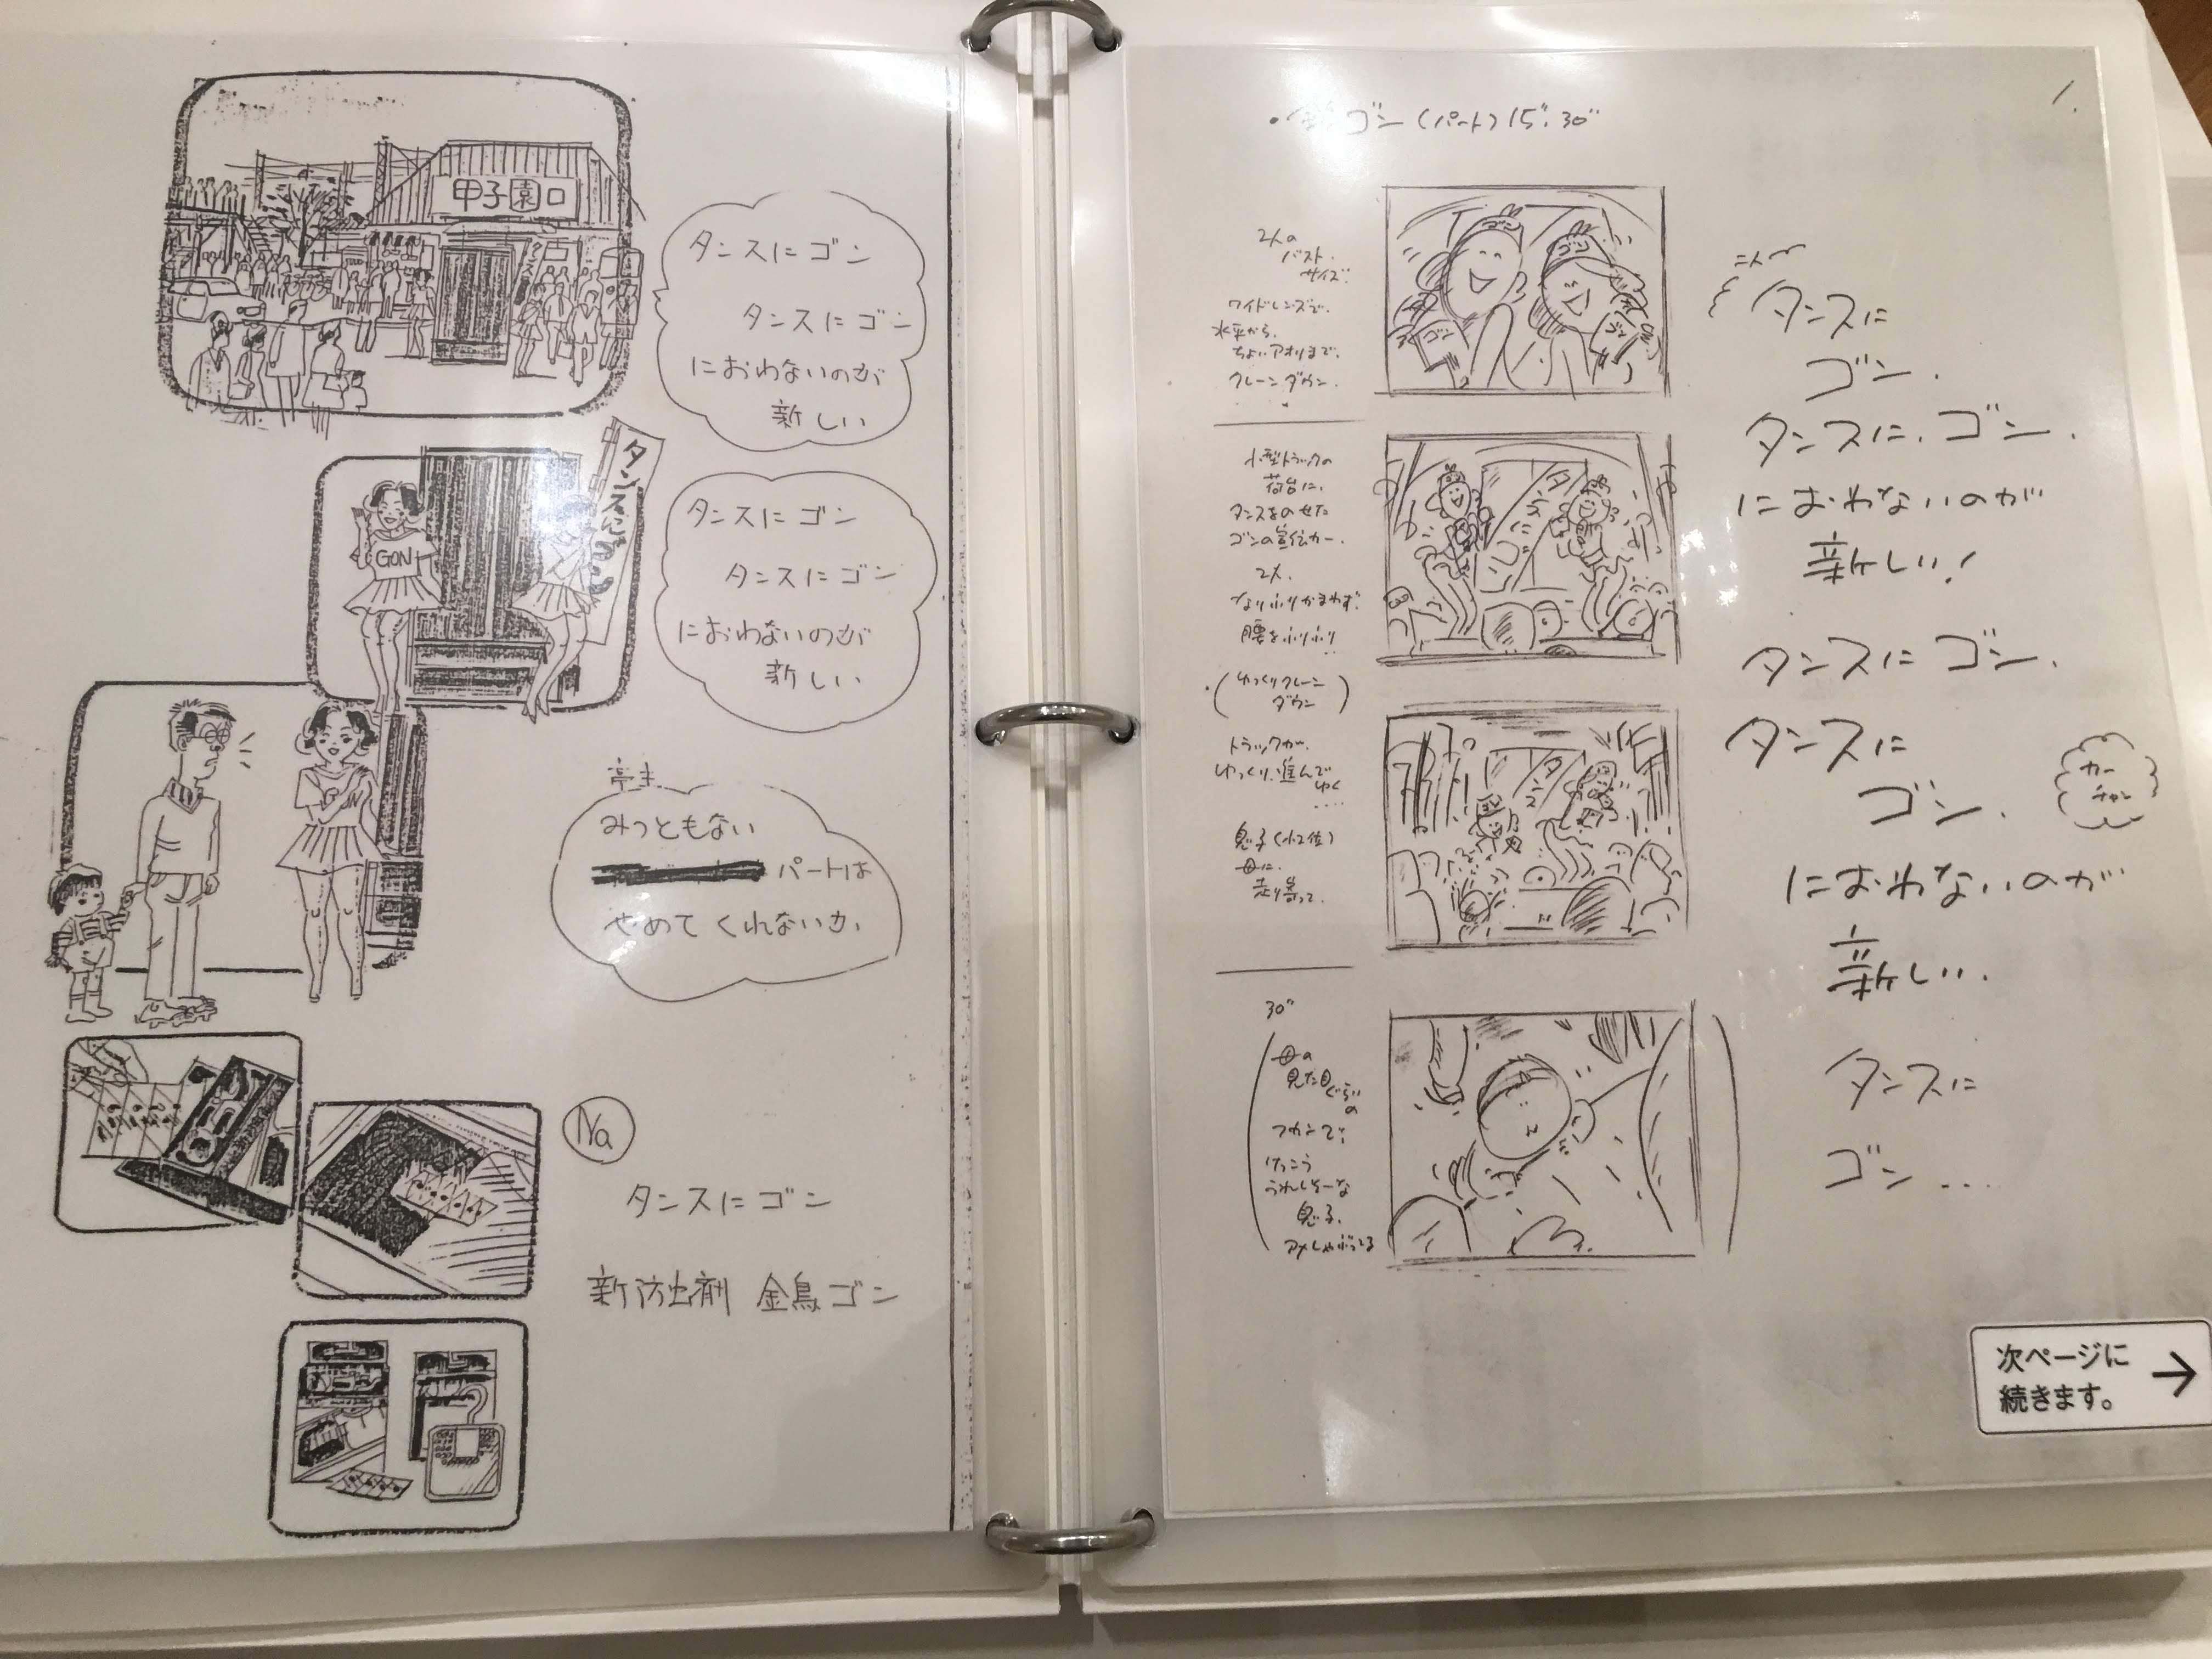 甲子園口
タンスにゴン
タンスにゴン
におわないのが
新しい
タンスにゴン
GON
タンスにゴン
タンスにゴン
におわないのが
新しい
亭主
みっともない
パートは
やめてくれないか
Na
タンスにゴン
新防虫剤 金鳥ゴン
1.
ゴン(パート)15" 30"
2人の
バスト.
サイズ.
ワイドレンズで.
水平から.
ちょいアオリまで.
クレーンダウン.
ゴン
ゴン
二人
タンスに
ゴン.
タンスに.ゴン.
におわないのが
新しい!
小型トラックの
荷台に.
タンスをのせた
ゴンの宣伝カー.
2人.
なりふりかまわず.
腰をふりふり
(ゆっくりクレーン
ダウン)
タンスに
タンスに ゴン.
タンスに
ゴン.
におわないのが
新しい.
トラックが.
ゆっくり.進んで
ゆく
....
息子(小2位)
母に.
走り寄って.
タンス
カー
チャン
30"
母の
見た目ぐらい
の
フカンで;
けっこう
うれしそーな
息子.
アメしゃぶってる
タンスに
ゴン....
次ページに
続きます。